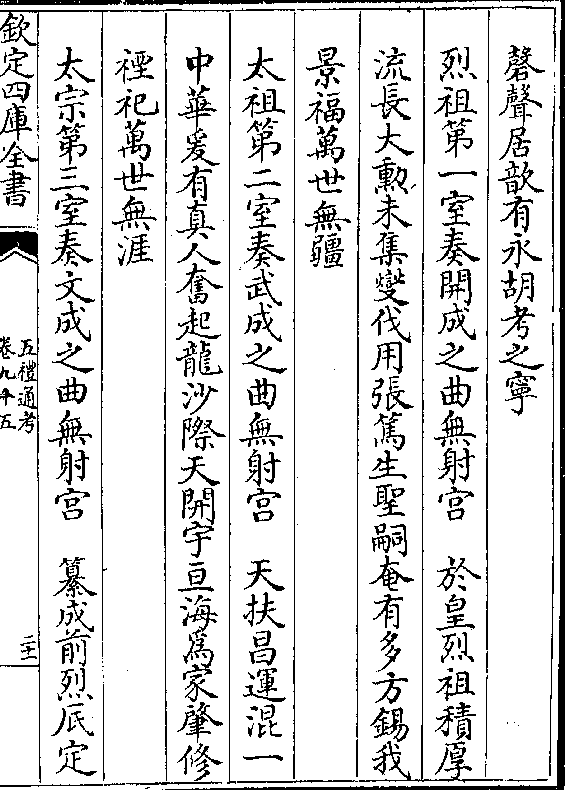 磬聲居歆有永胡考之寧
烈祖第一室奏開成之曲無射宮　於皇烈祖積厚
流長大勲未集燮伐用張篤生聖嗣奄有多方錫我
景福萬世無疆
太祖第二室奏武成之曲無射宮　天扶昌運混一
中華爰有真人奮起龍沙際天開宇亘海爲家肇修
禋祀萬世無涯
太宗第三室奏文成之曲無射宮　纂成前烈厎定
欽定四庫全書
五禮通考
卷九十五
二十一